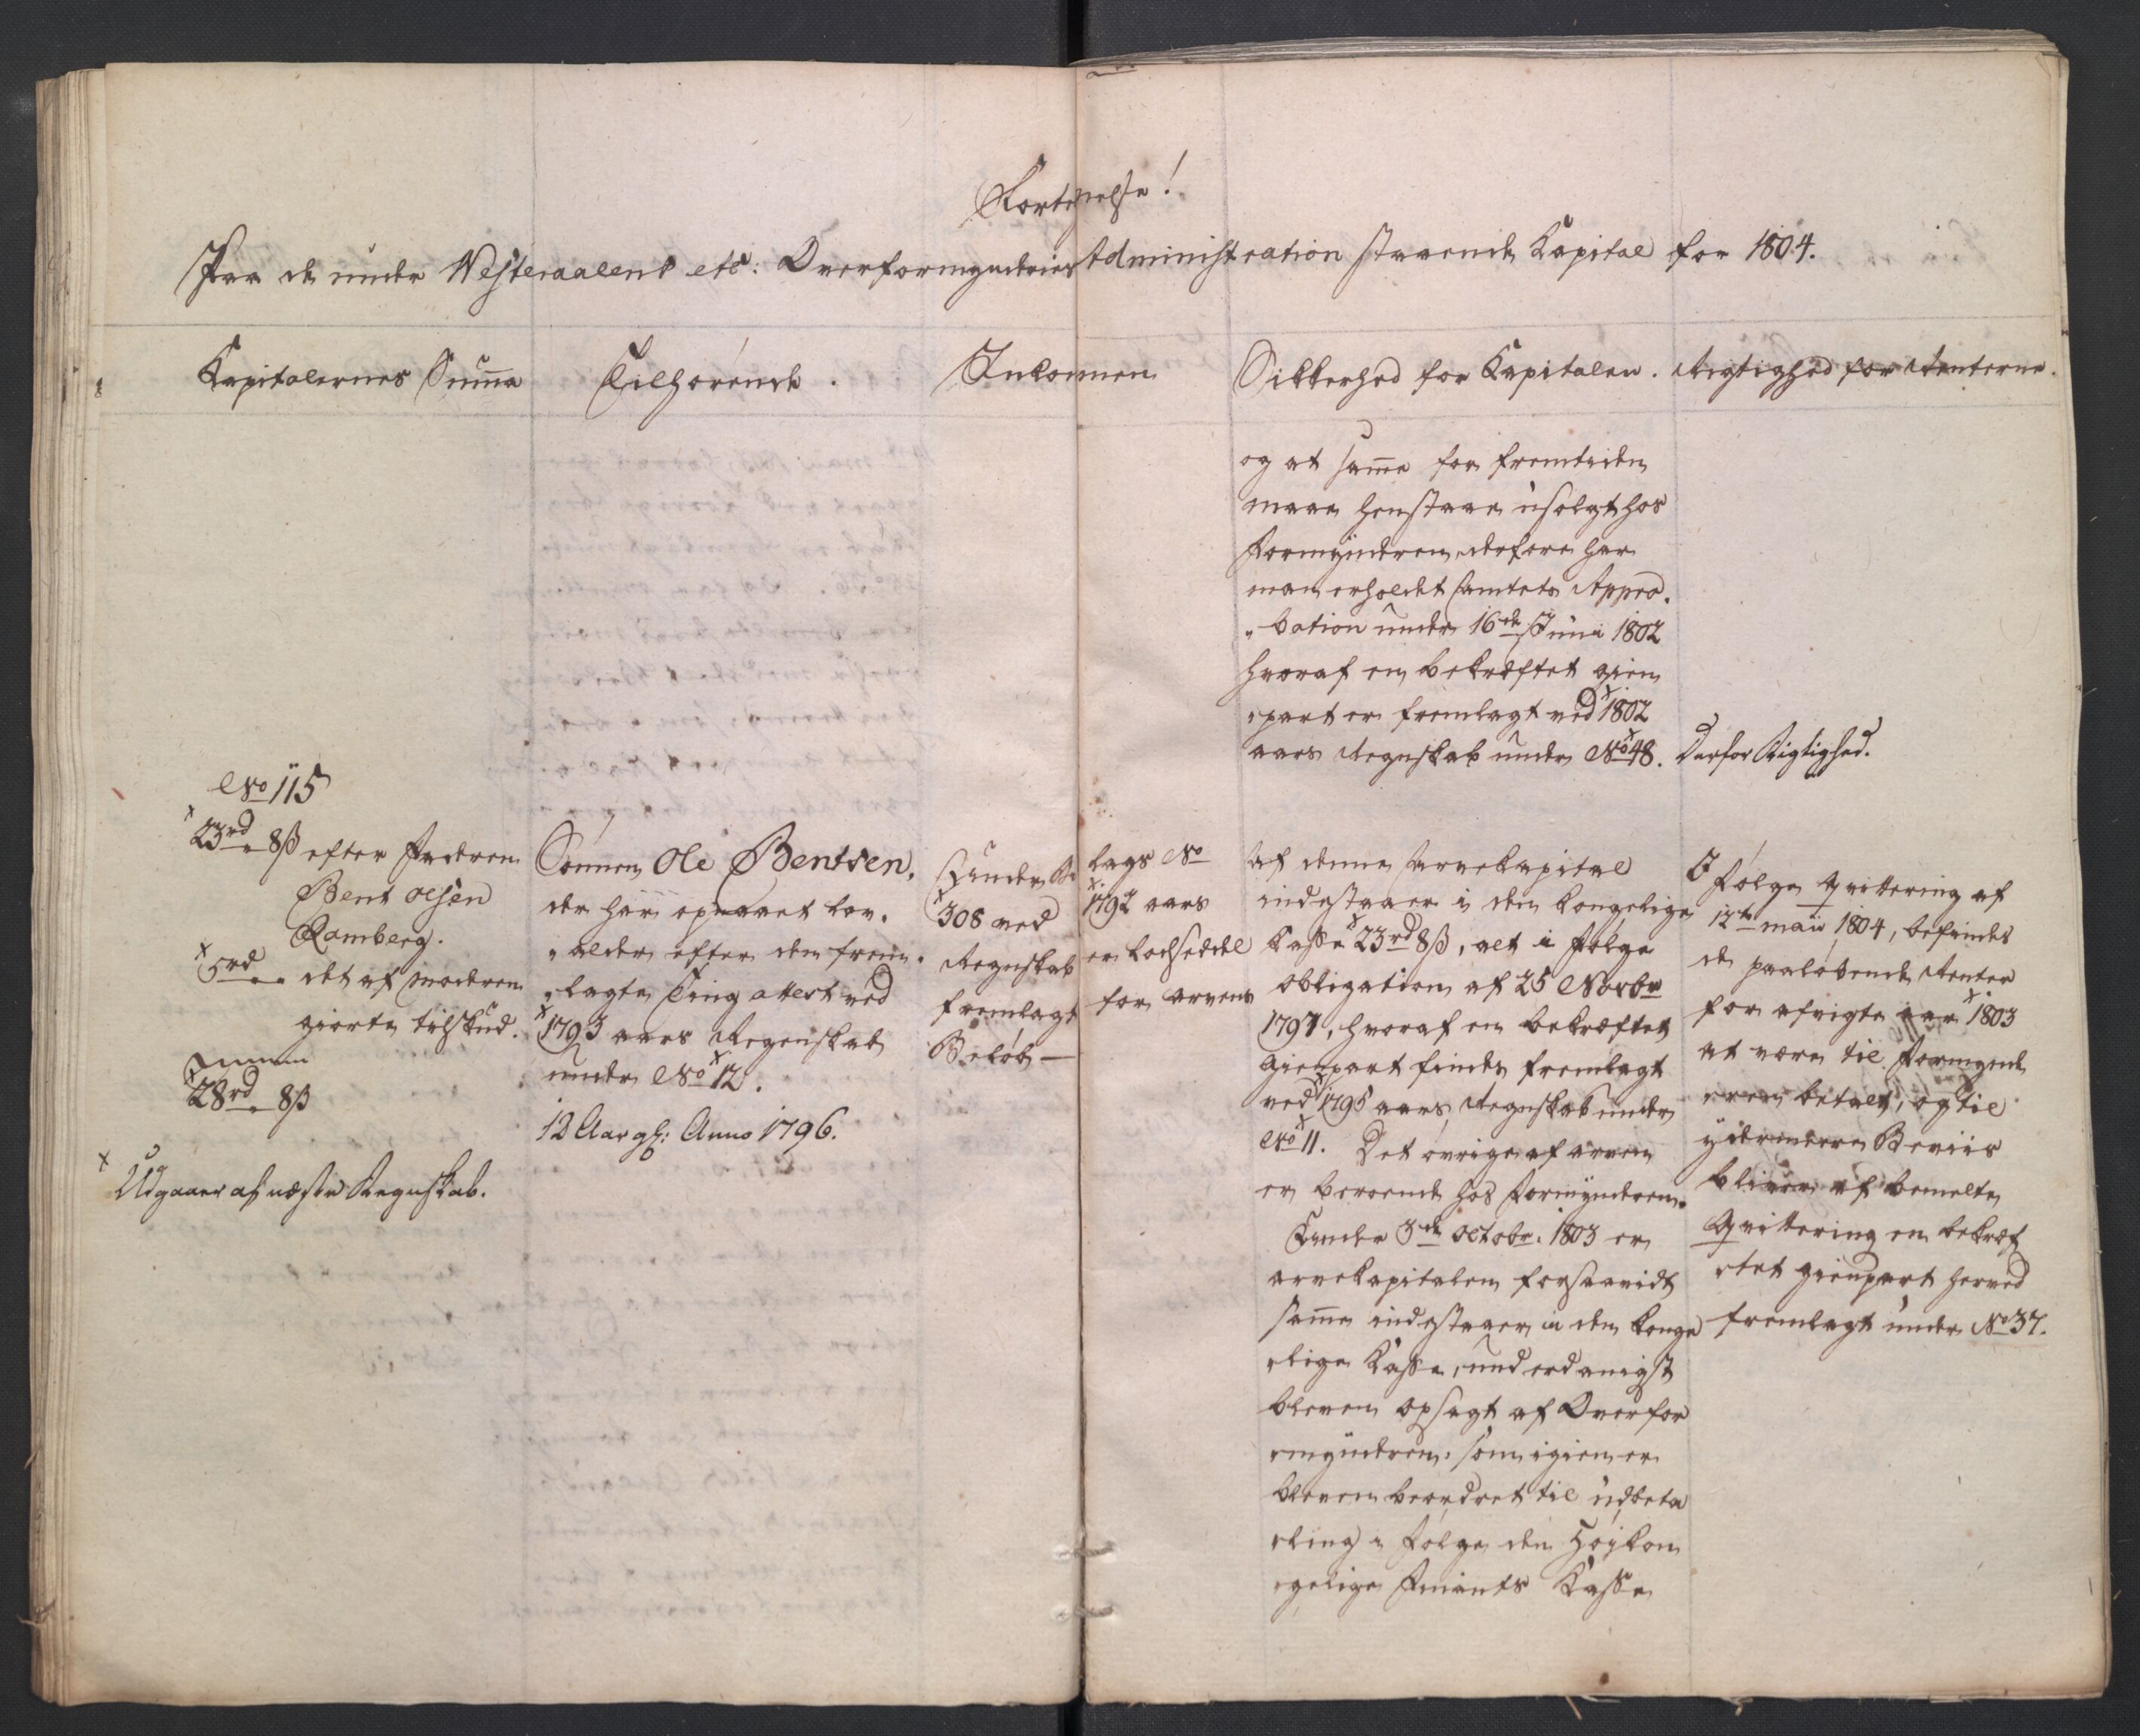 Fortegnelse!
Paa de under Westeraalens etc: Overformynderies Administration staaende Kapital for 1804.
Kapitalernes Sum̅a
Tilhørende.
Inkommen
Sikkerhed for Kapitalen.
Rigtighed for Renterne.
og at sam̅e for fremtiden
maae henstaae usolgt hos
Formynderen, derfore har
man erholdet Amtets Appro„
„bation under 16de Junii 1802
hvoraf en bekræftet gien
„part er fremlagt ved 1802
aars Regnskab under No 48.
Derfor Rigtighed.
No 115
23rd „ 8ß efter Faderen
Bent Olsen
Ramberg.
5rd „ „ det af Moderen
giorte tilskud.
Summa
28rd „ 8ß
Udgaaer af næste Regnskab.
Sönnen Ole Bentsen,
der har opnaaet lov„
„alder efter den frem„
„lagte Ting attest ved
1793 aars Regenskab
under No 12.
12 Aar gl: Anno 1796.
Under Bilags No
308 ved 1792 aars
Regnskab er Lodseddel
fremlagt for arvens
Beløb —
Af denne Arvekapital
indestaaer i den kongelige
Kasse 23rd 8ß, alt i Følge
Obligation af 25 Novbr
1794, hvoraf en bekræftet
gienpart findes fremlagt
ved 1795 aars Regnskab under
No 11. Det øvrige af arven
er beroende hos Formynderen.
Under 3de Octobr. 1803 er
arvekapitalen forsaavidt
sam̅e indestaaer i den konge
„lige Kasse, underdanigst
bleven opsagt af Overfor
„mynderen: som igien er
bleven beordret til udbeta
„ling i følge den Høykon
„gelige Finants Kasse
I Følge Qvittering af
12te Maii 1804, befindes
de paaløbende Renter
for afvigte aar 1803
at være til Formynd
eren betalt, og til
ydermere Beviis
bliver af bemelte
Qvittering en bekræf
„tet gienpart herved
fremlagt under No 37.